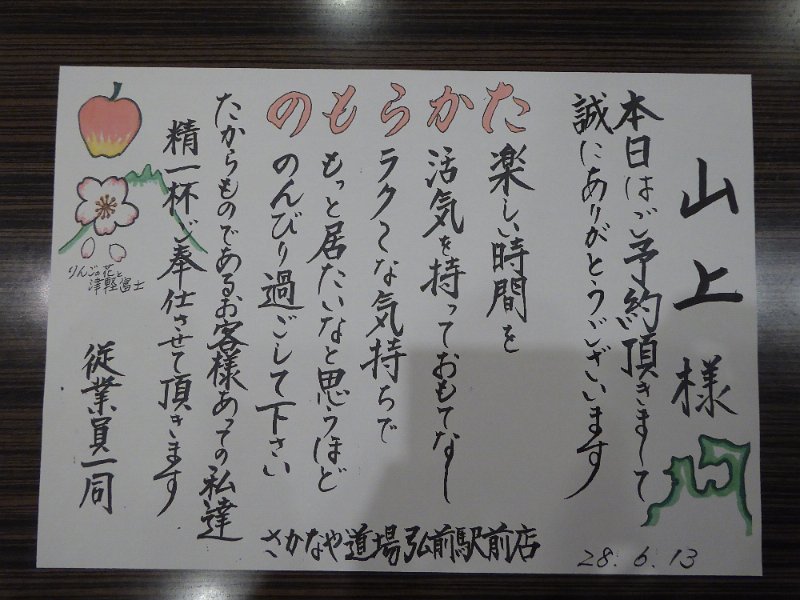 山上様
本日はご予約頂きまして
誠にありがとうございます
た楽しい時間を
か活気を持っておもてなし
らラクな気持ちで
ももっと居たいなと思うほど
ののんびり過ごして下さい
たからものであるお客様あっての私達
精一杯ご奉仕させて頂きます
りんごの花と
津軽富士
従業員一同
さかなや道場弘前駅前店
28.6.13